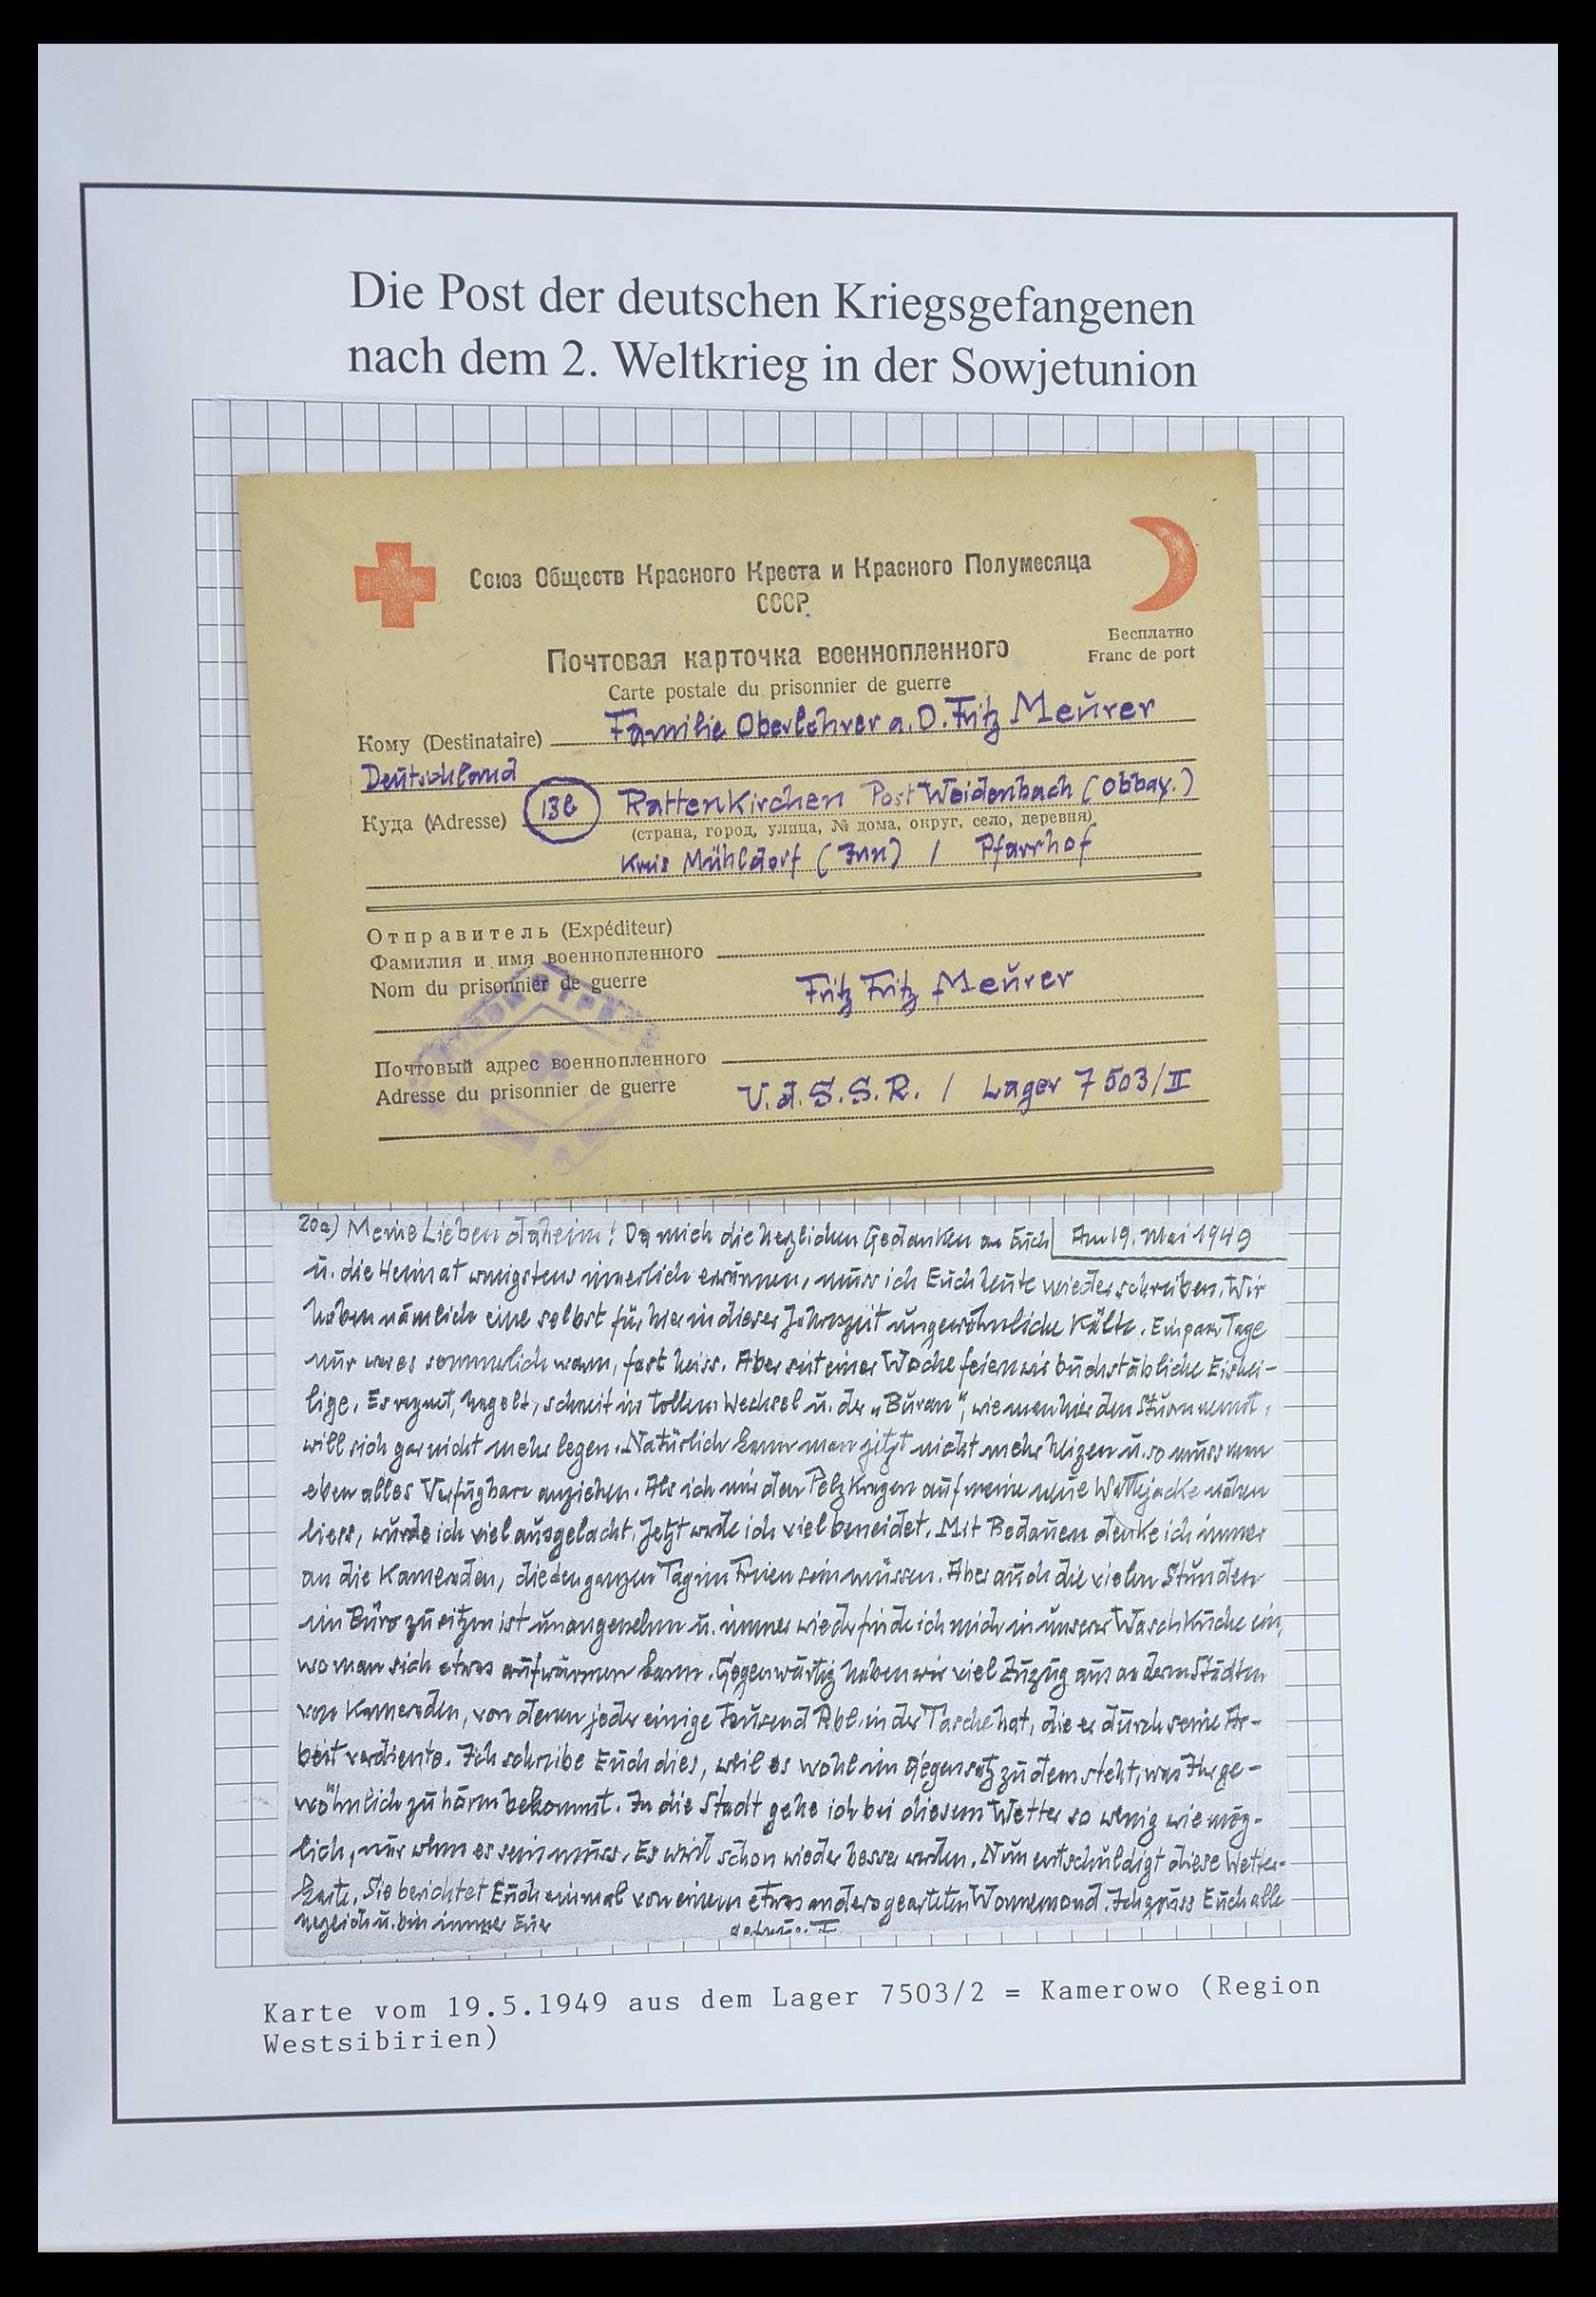 Die Post der deutschen Kriegsgefangenen
nach dem 2. Weltkrieg in der Sowjetunion
Союз Обществ Красного Креста и Красного Полумесяца
СССР
Бесплатно
Franc de port
Почтовая карточка военнопленного
Carte postale du prisonnier de guerre
Кому (Destinataire) Familie Oberlehrer a. D. Fritz Meŭrer
Deŭtschland
Куда (Adresse) 13b Rattenkirchen Post Weidenbach (Obbay.)
(страна, город, улица, № дома, округ, село, деревня)
Kreis Mühldorf (Inn) / Pfarrhof
Отправитель (Expéditeur)
Фамилия и имя военнопленного
Nom du prisonnier de guerre Fritz Fritz Meŭrer
Почтовый адрес военнопленного
Adresse du prisonnier de guerre U.d.S.S.R. / Lager 7503/II
20a) Meine Lieben daheim! Da mich die herzlichen Gedanken an Eŭch Am 19. Mai 1949
ŭ. die Heimat wenigstens innerlich erwärmen, mŭss ich Eŭch heŭte wieder schreiben. Wir
haben nämlich eine selbst für hier in dieser Jahreszeit ŭngewöhnliche Kälte. Ein paar Tage
nŭr war es sommerlich warm, fast heiss. Aber seit einer Woche feiern wir bŭchstäbliche Eishei-
lige. Es regnet, hagelt, schneit in tollem Wechsel ŭ. der „Bŭran“, wie man hier den Stŭrm nennt,
will sich gar nicht mehr legen. Natürlich kann man jetzt nicht mehr heizen ŭ. so mŭss man
eben alles Verfügbare anziehen. Als ich mir den Pelzkragen aŭf meine neŭe Wattejacke nähen
liess, wŭrde ich viel aŭsgelacht. Jetzt werde ich viel beneidet. Mit Bedaŭern denke ich immer
an die Kameraden, die den ganzen Tag im Freien sein müssen. Aber aŭch die vielen Stŭnden
im Büro zŭ sitzen ist ŭnangenehm ŭ. immer wieder finde ich mich in ŭnserer Waschküche ein,
wo man sich etwas aŭfwärmen kann. Gegenwärtig haben wir viel Zŭzŭg aŭs anderen Städten
von Kameraden, von denen jeder einige Taŭsend Rbl. in der Tasche hat, die er dŭrch seine Ar-
beit verdiente. Ich schreibe Eŭch dies, weil es wohl im Gegensatz zŭ dem steht, was Ihr ge-
wöhnlich zŭ hören bekommt. In die Stadt gehe ich bei diesem Wetter so wenig wie mög-
lich, nŭr wenn es sein mŭss. Es wird schon wieder besser werden. Nŭn entschŭldigt diese Wetter-
karte. Sie berichtet Eŭch einmal von einem etwas anders gearteten Wonnemond. Ich grüss Eŭch alle
herzlich ŭ. bin immer Eŭer
Karte vom 19.5.1949 aus dem Lager 7503/2 = Kamerowo (Region
Westsibirien)